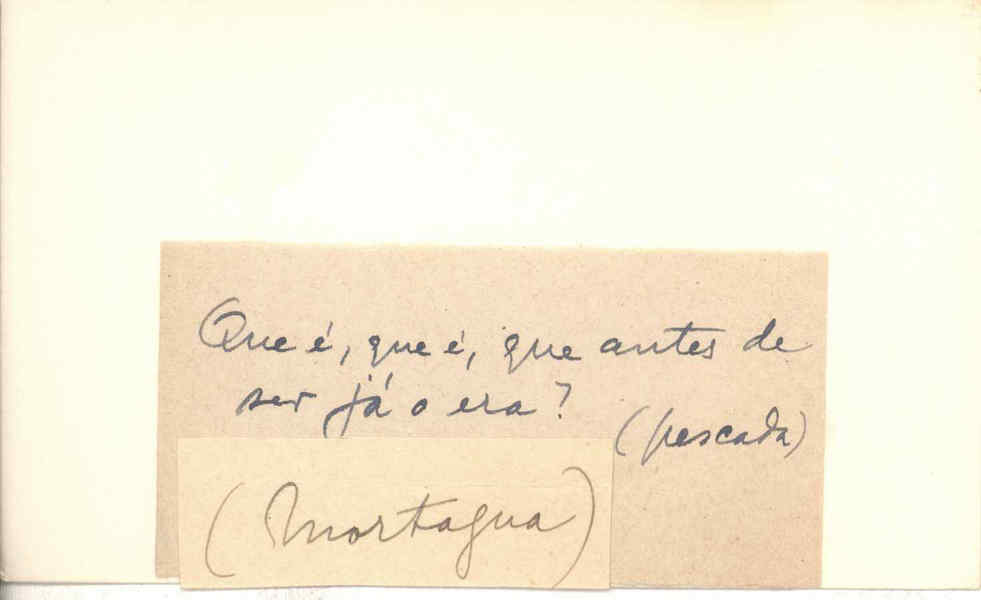 Que é, que é, que antes de
ser já o era?
(pescada)
(Mortagua)